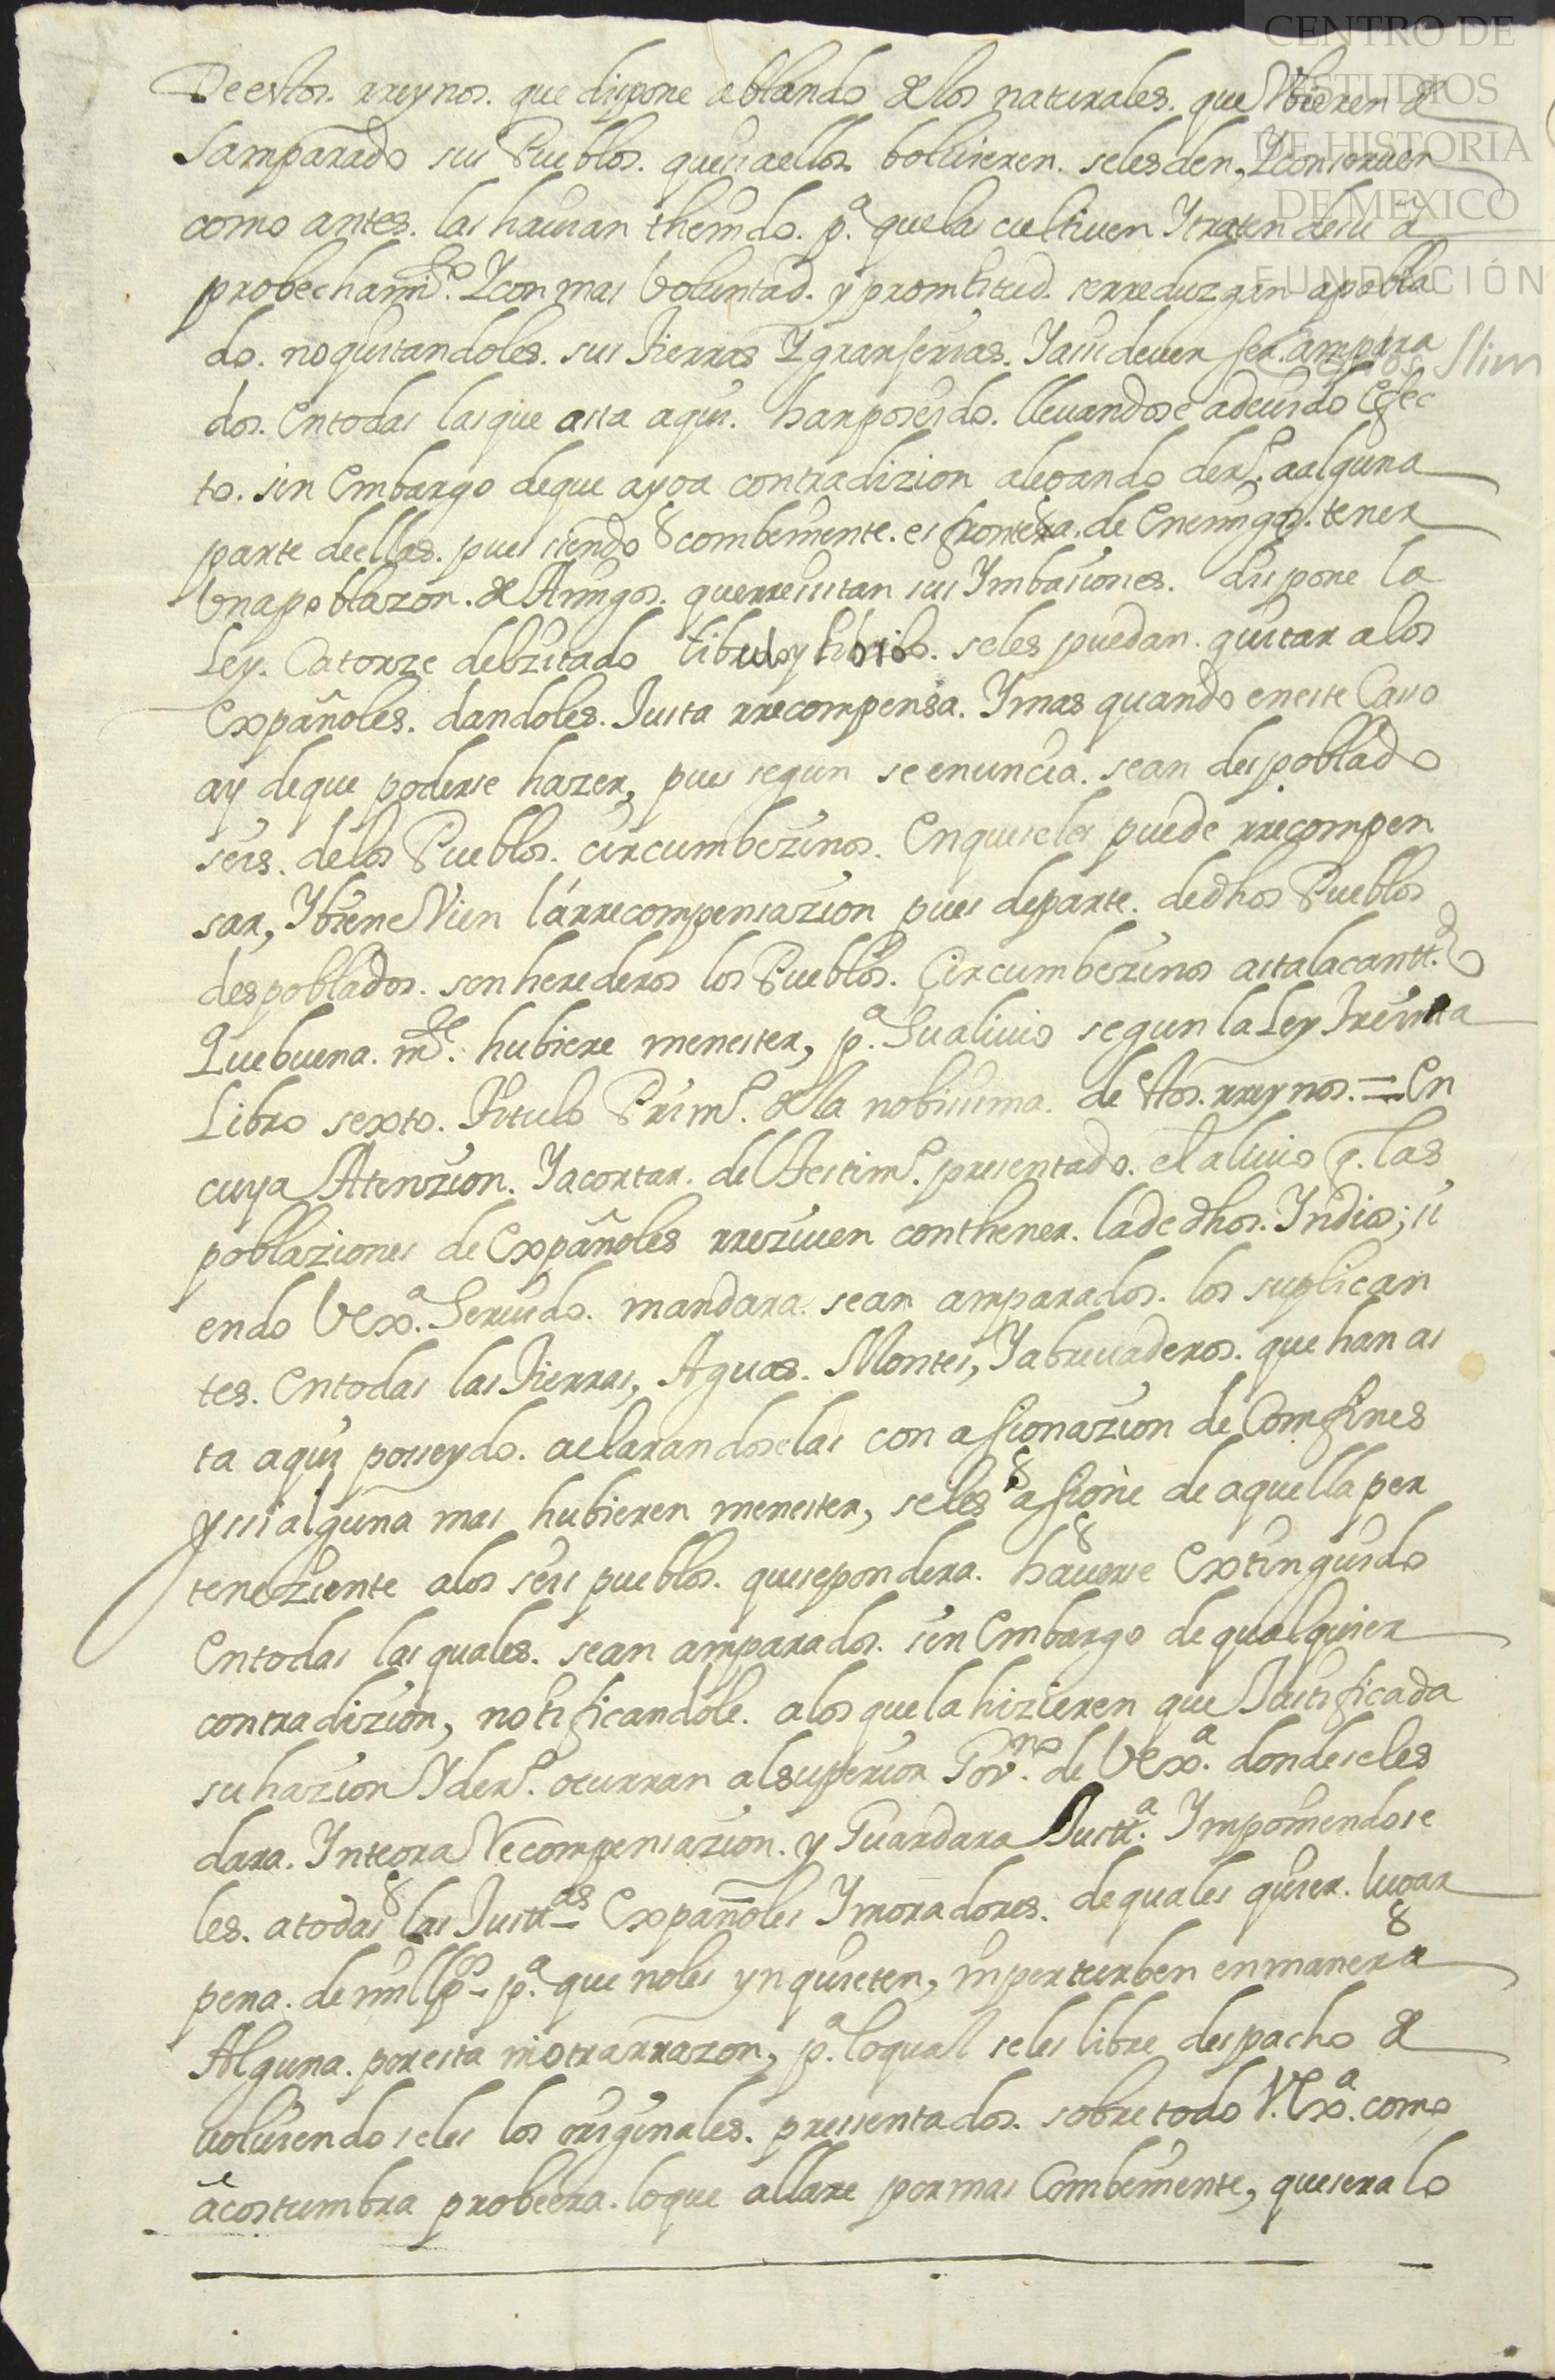 CENTRO DE
ESTUDIOS
DE HISTORIA
DE MEXICO
FUNDACIÓN
Carlos Slim
De estos. rreynos. que dispone ablando de los naturales. que Vbieren de
Samparado sus Pueblos. que si a ellos bolbieren. seles den, Y conserven
como antes. las havian thenido. p.ª que las cultiven Y traten de su a
probechami.to Y con mas Voluntad. y promptitud. se rreduzgan a pobla
do. no quitandoles. sus Tierras Y granjerias. Y assi deven ser. ampara
dos. En todas las que asta aqui. han poseido. llevandose a devido Efec
to. sin Embargo de que ayga contradizion alegando der.º a alguna
parte de ellas. pues siendo combeniente. es frontera. de Enemigos. tener
Vna poblazon. de Amigos. que rresistan sus Ymbasiones. dispone la
Ley. Catorze del zitado titulo y libro. seles puedan. quitar a los
Españoles. dandoles. Justa rrecompensa. Y mas quando en este Casso
ay de que poderse hazer, pues segun se enuncia. sean despoblado
seis. de los Pueblos. circumbezinos. En que seles puede rrecompen
sar, Y biene Vien la rrecompensazion pues de parte. de dhos Pueblos
despoblados. son herederos los Pueblos. Circumbezinos asta la cantt.d
Que buena. m.te hubiere menester, p.ª Su alivio segun la Ley Treinta
Libro sexto. Titulo Prim.º de la nobissima. de estos. rreynos. = En
cuya Atenzion. Y acortar. del Testim.º presentado. el alivio q. las
poblaziones de Españoles rreziven con thener. la de dhos. Yndios; si
endo VEx.ª Servido. mandara. sean amparados. los suplican
tes. En todas las Tierras, Aguas. Montes, Y abrevaderos. que han as
ta aqui posseydo. aclarandoselas con assignazion de Comfines
y si alguna mas hubieren menester, seles assigne de aquella per
teneziente a los seis pueblos. que se pondera. haverse Extinguido
En todas las quales. sean amparados. sin Embargo de qualquier
contradizion, notificandole. a los que la hizieren que Justificada
su hazion Y der.º ocurran al superior Gov.no de VEx.ª donde seles
dara. Yntegra Recompensazion. y Guardara Justt.ª Ymponiendose
les. a todas las Justt.as Españoles Y moradores. de quales quier. lugar
pena. de mill p.os p.ª que no les ynquieten, ni perturben en manera
Alguna. por esta ni otra rrazon, p.ª lo qual seles libre despacho de
volviendoseles los originales. pressentados. sobre todo V.Ex.ª como
acostumbra probeera. lo que allare por mas Combeniente, que sera lo